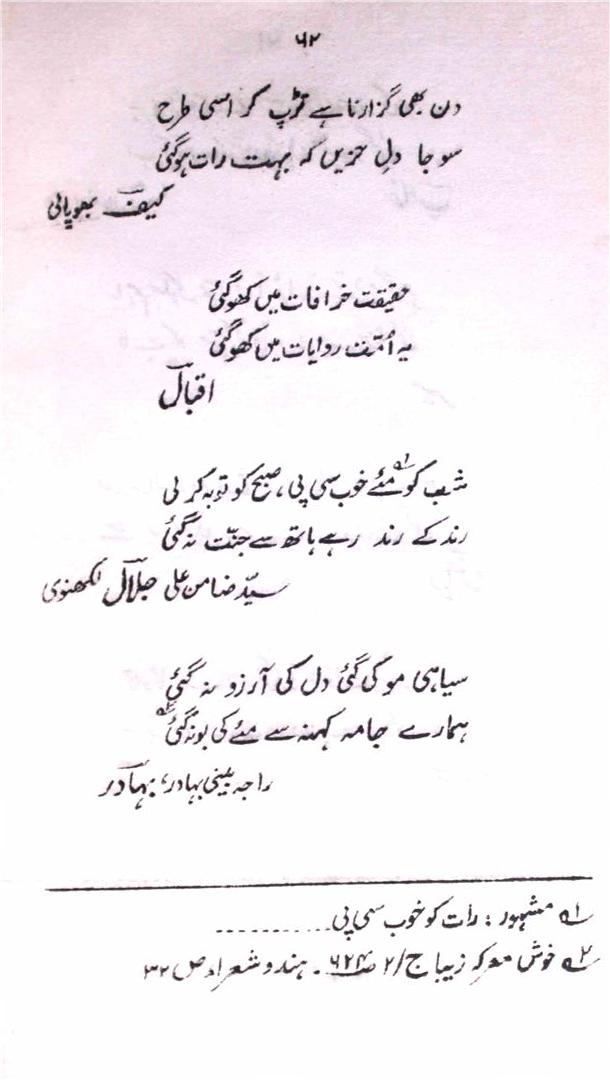 ۶۲
دن بھی گزارنا ہے تڑپ کر اسی طرح
سو جا دلِ حزیں کہ بہت رات ہوگئی
کیفؔ بھوپالی
حقیقت خرافات میں کھوگئی
یہ اُمّت روایات میں کھوگئی
اقبالؔ
شب کو مئے خوب سی پی، صبح کو توبہ کرلی
رند کے رند رہے ہاتھ سے جنّت نہ گئی
سیّد ضامن علی جلالؔ لکھنوی
سیاہی مو کی گئی دل کی آرزو نہ گئی
ہمارے جامہ کہنہ سے مئے کی بو نہ گئی
راجہ بینی بہادر، بہادرؔ
۱؎ مشہور : رات کو خوب سی پی............
۲؎ خوش معرکہ زیبا ج/۲ ص ۶۲۴۔ ہندو شعراء ص ۳۲